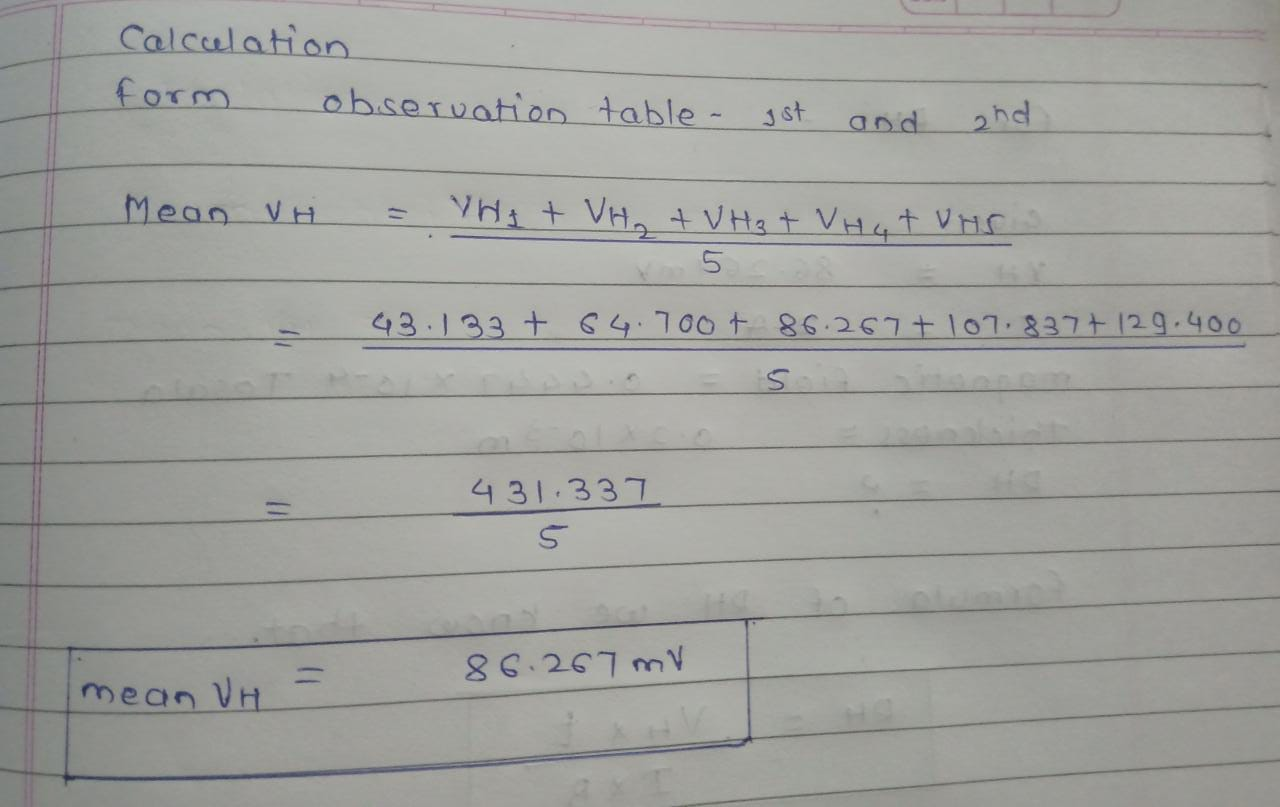 Calculation
form observation table - 1st and 2nd
Mean VH = VH1 + VH2 + VH3 + VH4 + VH5
5
= 43.133 + 64.700 + 86.267 + 107.837 + 129.400
5
= 431.337
5
mean VH = 86.267 mV